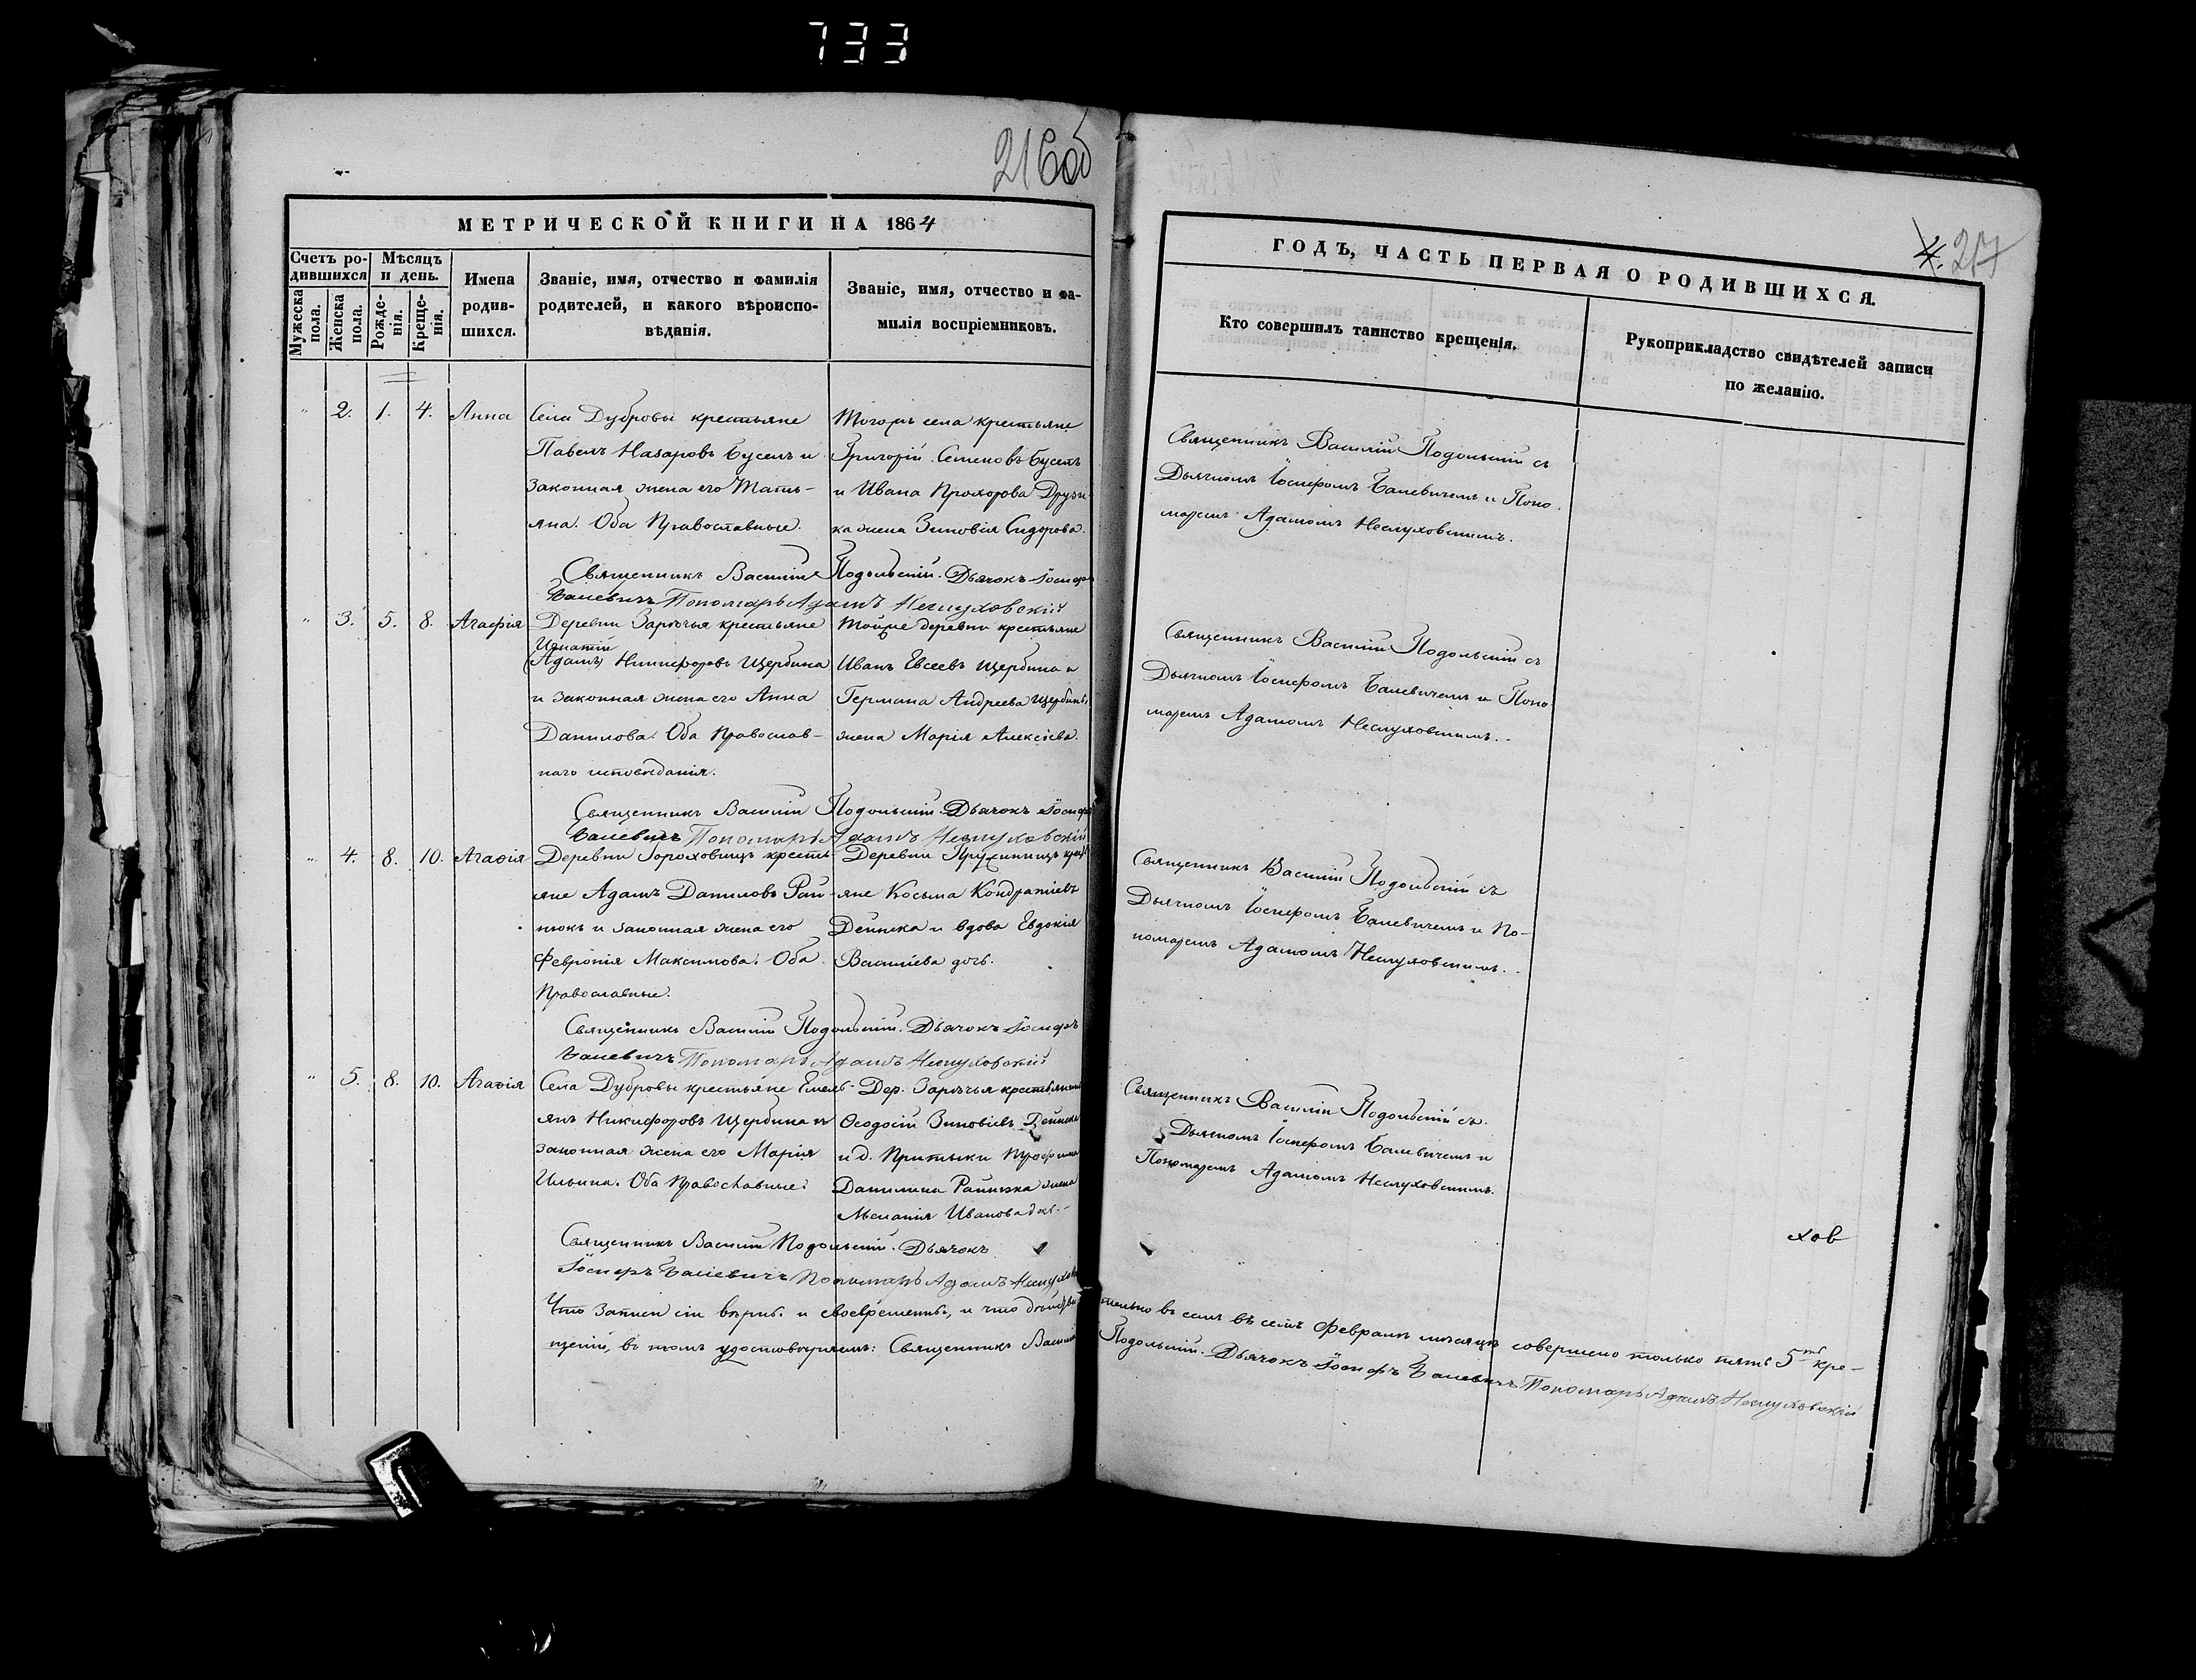 733
216об
МЕТРИЧЕСКОЙ КНИГИ НА 1864
Счетъ ро-
дившихся
Мѣсяцъ
и день.
Мужеска
пола.
Женска
пола.
Рожде-
нія.
Креще-
нія.
Имена
родив-
шихся.
Званіе, имя, отчество и фамилія
родителей, и какого вѣроиспо-
вѣданія.
Званіе, имя, отчество и фа-
милія воспріемниковъ.
" 2. 1. 4. Анна
Села Дубровы крестьяне
Павелъ Назаровъ Бусель и
законная жена его Тать-
яна. Оба Православные.
Тогожъ села крестьяне
Григорій Семеновъ Бусель
и Ивана Прохорова Друзи-
ка жена Зиновія Сидорова.
Священникъ Василій Подольскій. Дьячокъ Іосифъ
Балевичъ Пономарь Адамъ Неслуховскій
" 3. 5. 8. Агафія
Деревни Зарѣчья крестьяне
Игнатій
(Адамъ) Никифоровъ Щербина
и законная жена его Анна
Данилова. Оба Православ-
наго исповѣданія.
Тойже деревни крестьяне
Иванъ Евсеевъ Щербина и
Германа Андреева Щербины
жена Марія Алексѣева.
Священникъ Василій Подольскій. Дьячокъ Іосифъ
Балевичъ Пономарь Адамъ Неслуховскій
" 4. 8. 10. Агафія
Деревни Гороховищъ кресть-
яне Адамъ Даниловъ Рай-
нюкъ и законная жена его
Февронія Максимова. Оба
Православные.
Деревни Прухнищъ крест-
яне Косьма Кондратіевъ
Дейнека и вдова Евдокія
Василіева дочь.
Священникъ Василій Подольскій. Дьячокъ Іосифъ
Балевичъ Пономарь Адамъ Неслуховскій
" 5. 8. 10. Агафія
Села Дубровы крестьяне Емель-
янъ Никифоровъ Щербина и
законная жена его Марія
Ильина. Оба Православные.
Дер. Зарѣчья крестьянинъ
Ѳеодосій Зиновіевъ Дейнека
и д. Притыки Трофима
Данилина жена
Меланія Иванова
Священникъ Василій Подольскій. Дьячокъ
Іосифъ Балевичъ Пономарь Адамъ Неслухов
Что записи сіи вѣрны и своевременны, и что дѣйстви
щеній, въ томъ удостовѣряемъ: Священникъ Василій
4. 217
ГОДЪ, ЧАСТЬ ПЕРВАЯ О РОДИВШИХСЯ.
Кто совершилъ таинство крещенія.
Рукоприкладство свидѣтелей записи
по желанію.
Священникъ Василій Подольскій съ
Дьячкомъ Іосифомъ Балевичемъ и Поно-
маремъ Адамомъ Неслуховскимъ.
Священникъ Василій Подольскій съ
Дьячкомъ Іосифомъ Балевичемъ и Поно-
маремъ Адамомъ Неслуховскимъ.
Священникъ Василій Подольскій съ
Дьячкомъ Іосифомъ Балевичемъ и По-
номаремъ Адамомъ Неслуховскимъ.
Священникъ Василій Подольскій съ
Дьячкомъ Іосифомъ Балевичемъ и
Пономаремъ Адамомъ Неслуховскимъ.
хов
тельно въ семъ въ семъ Февралѣ мѣсяцѣ совершено только пять 5ть кре-
Подольскій. Дьячокъ Іосифъ Балевичъ Пономарь Адамъ Неслуховскій